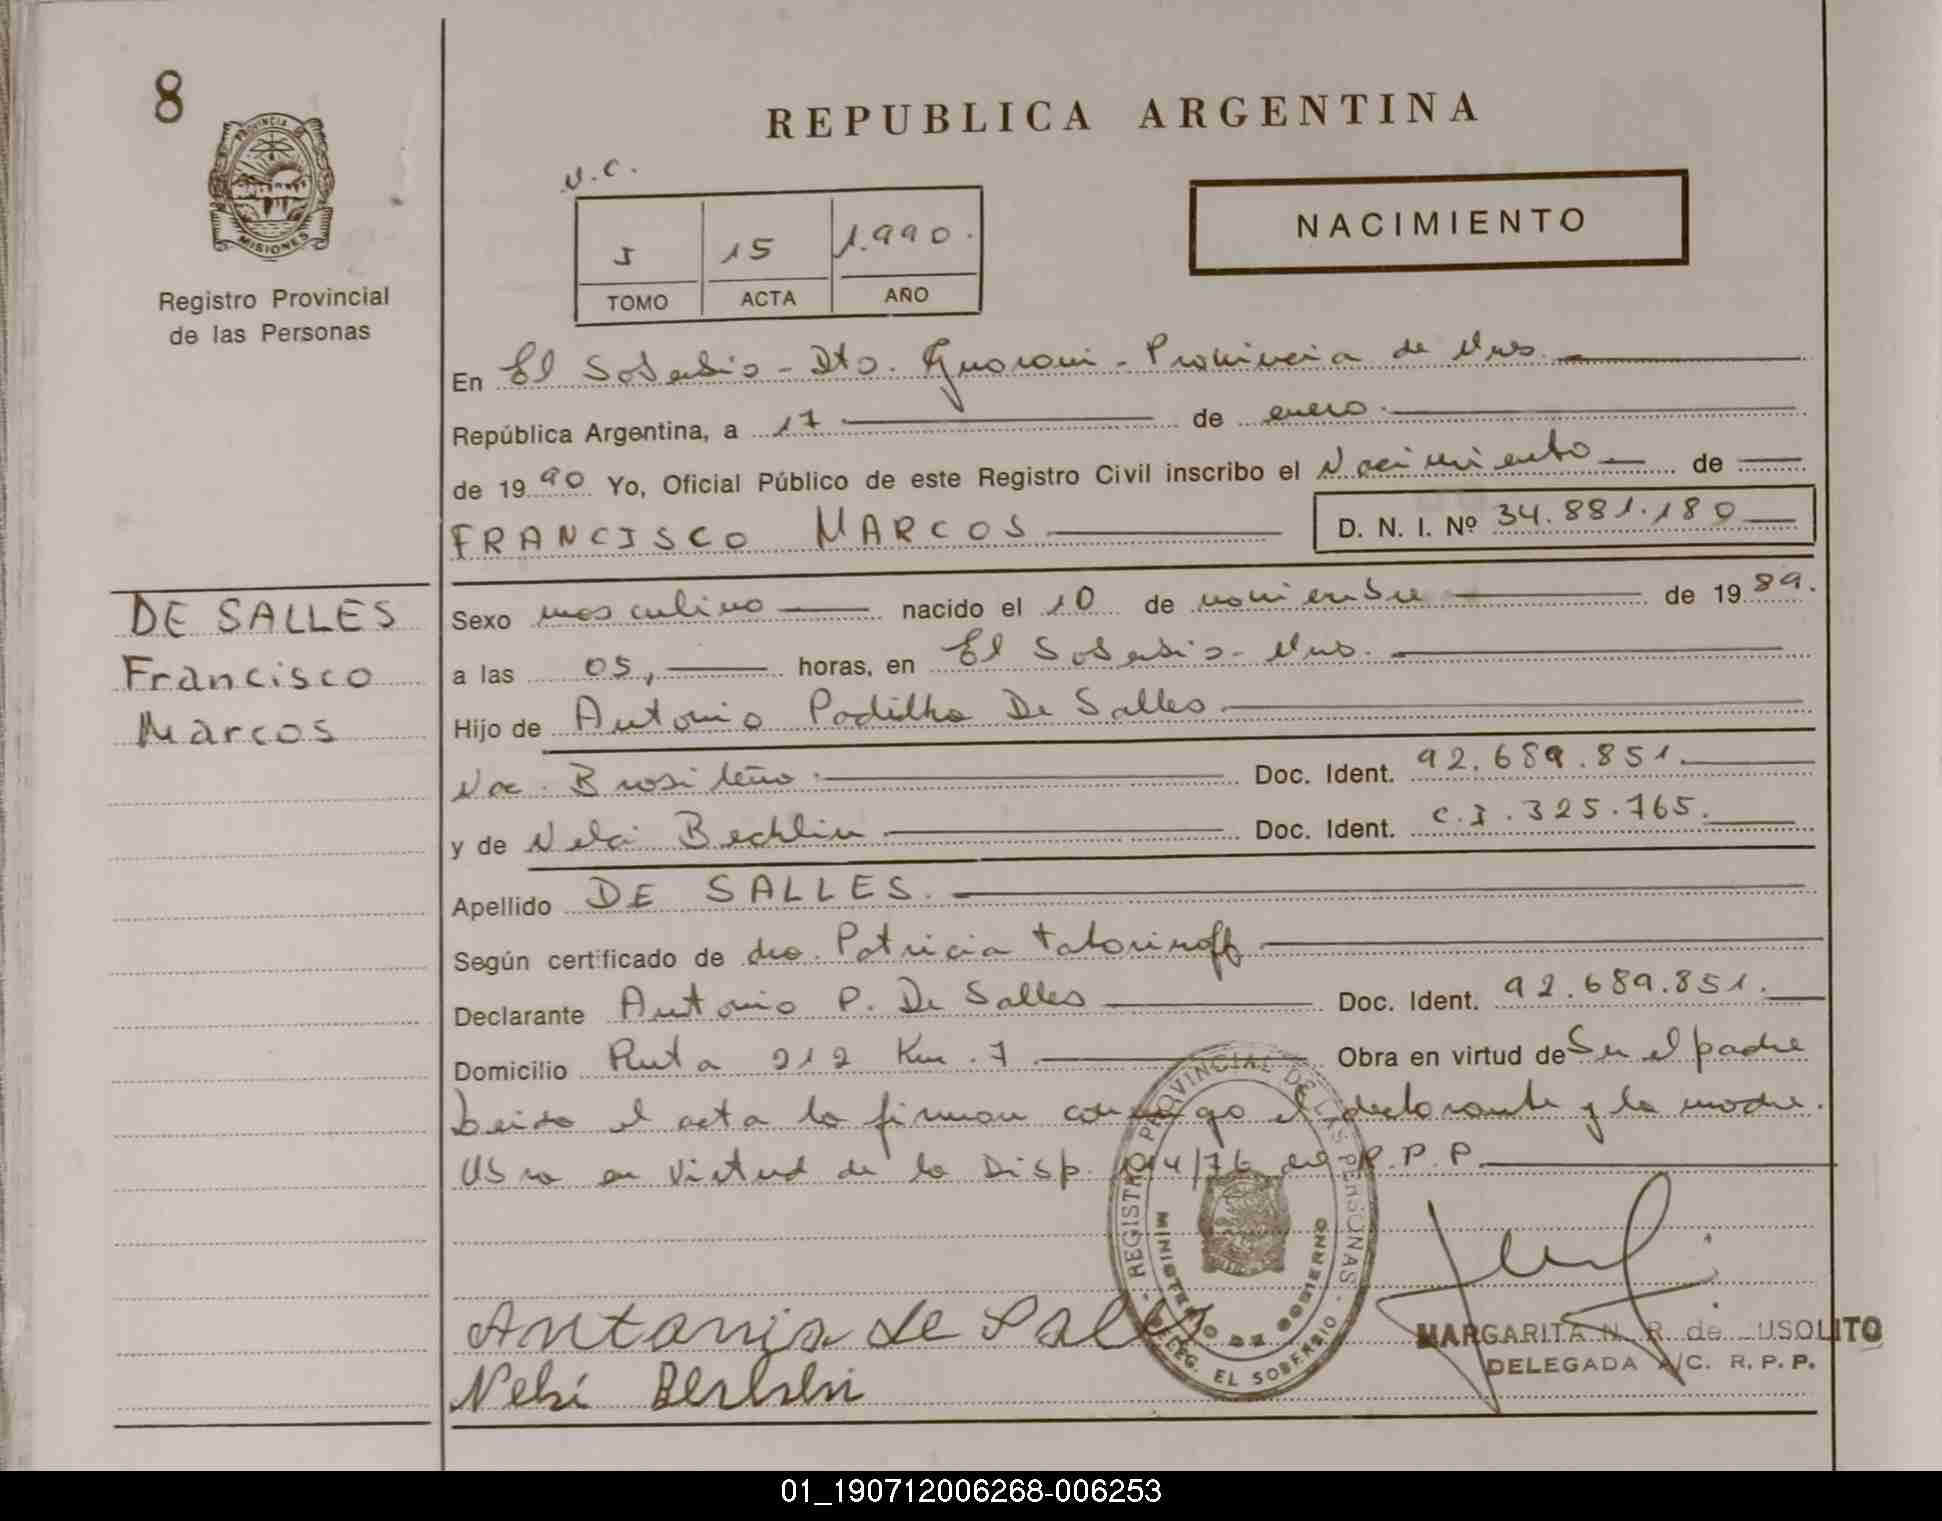 8
PROVINCIA DE
MISIONES
Registro Provincial
de las Personas
REPUBLICA ARGENTINA
NACIMIENTO
15 1.990.
TOMO ACTA AÑO
En El Soberbio - Dto. Guarani - Provincia de Mnes.
República Argentina, a 17 de enero.
de 1990 Yo, Oficial Público de este Registro Civil inscribo el Nacimiento de
FRANCISCO MARCOS D. N. I. Nº 34.881.180
DE SALLES
Francisco
Marcos
Sexo masculino nacido el 10 de noviembre de 1989.
a las 05, horas, en El Soberbio - Mnes.
Hijo de Antonio Padilha De Salles
Nac. Brasileño. Doc. Ident. 92.689.851.
y de Nelci Doc. Ident. C.I. 325.765.
Apellido DE SALLES.
Según certificado de dra. Patricia
Declarante Antonio P. De Salles Doc. Ident. 92.689.851.
Domicilio Ruta 212 Km. 7 Obra en virtud de Ser el padre
Leida el acta la firman conmigo el declarante y la madre.
Obra en virtud de la Disp. 104/76 del R.P.P.
REGISTRO PROVINCIAL DE LAS PERSONAS
MINISTERIO DE GOBIERNO
DELEG. EL SOBERBIO
Antonio de Salles
MARGARITA N. R. de USOLITO
DELEGADA A/C. R. P. P.
01_190712006268-006253